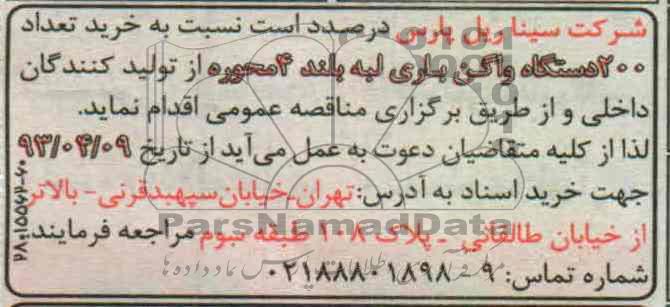 شرکت سینا ریل پارس درصدد است نسبت به خرید تعداد
۲۰۰دستگاه واگن باری لبه بلند ۴محوره از تولید کنندگان
داخلی و از طریق برگزاری مناقصه عمومی اقدام نماید.
لذا از کلیه متقاضیان دعوت به عمل می آید از تاریخ ۹۳/۰۴/۰۹
جهت خرید اسناد به آدرس: تهران-خیابان سپهبدقرنی- بالاتر
از خیابان طالقانی - پلاک ۱۰۸ طبقه سوم مراجعه فرمایند.
شماره تماس: ۹ - ۰۲۱۸۸۸۰۱۸۹۸
ParsNamadData